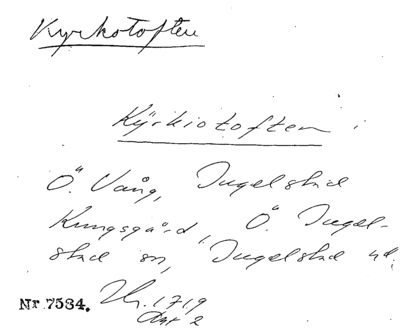 Kyrkotoften
Kÿrkiotoften i
Ö. Vång, Ingelstad
Kungsgård, Ö. Ingel-
stad sn, Ingelstad hd.
Nr 7584. 1719
Akt 2